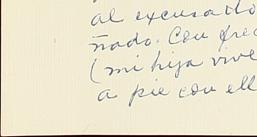 al excusado
ñado. Con frec
(mi hija vive
a pie con ell